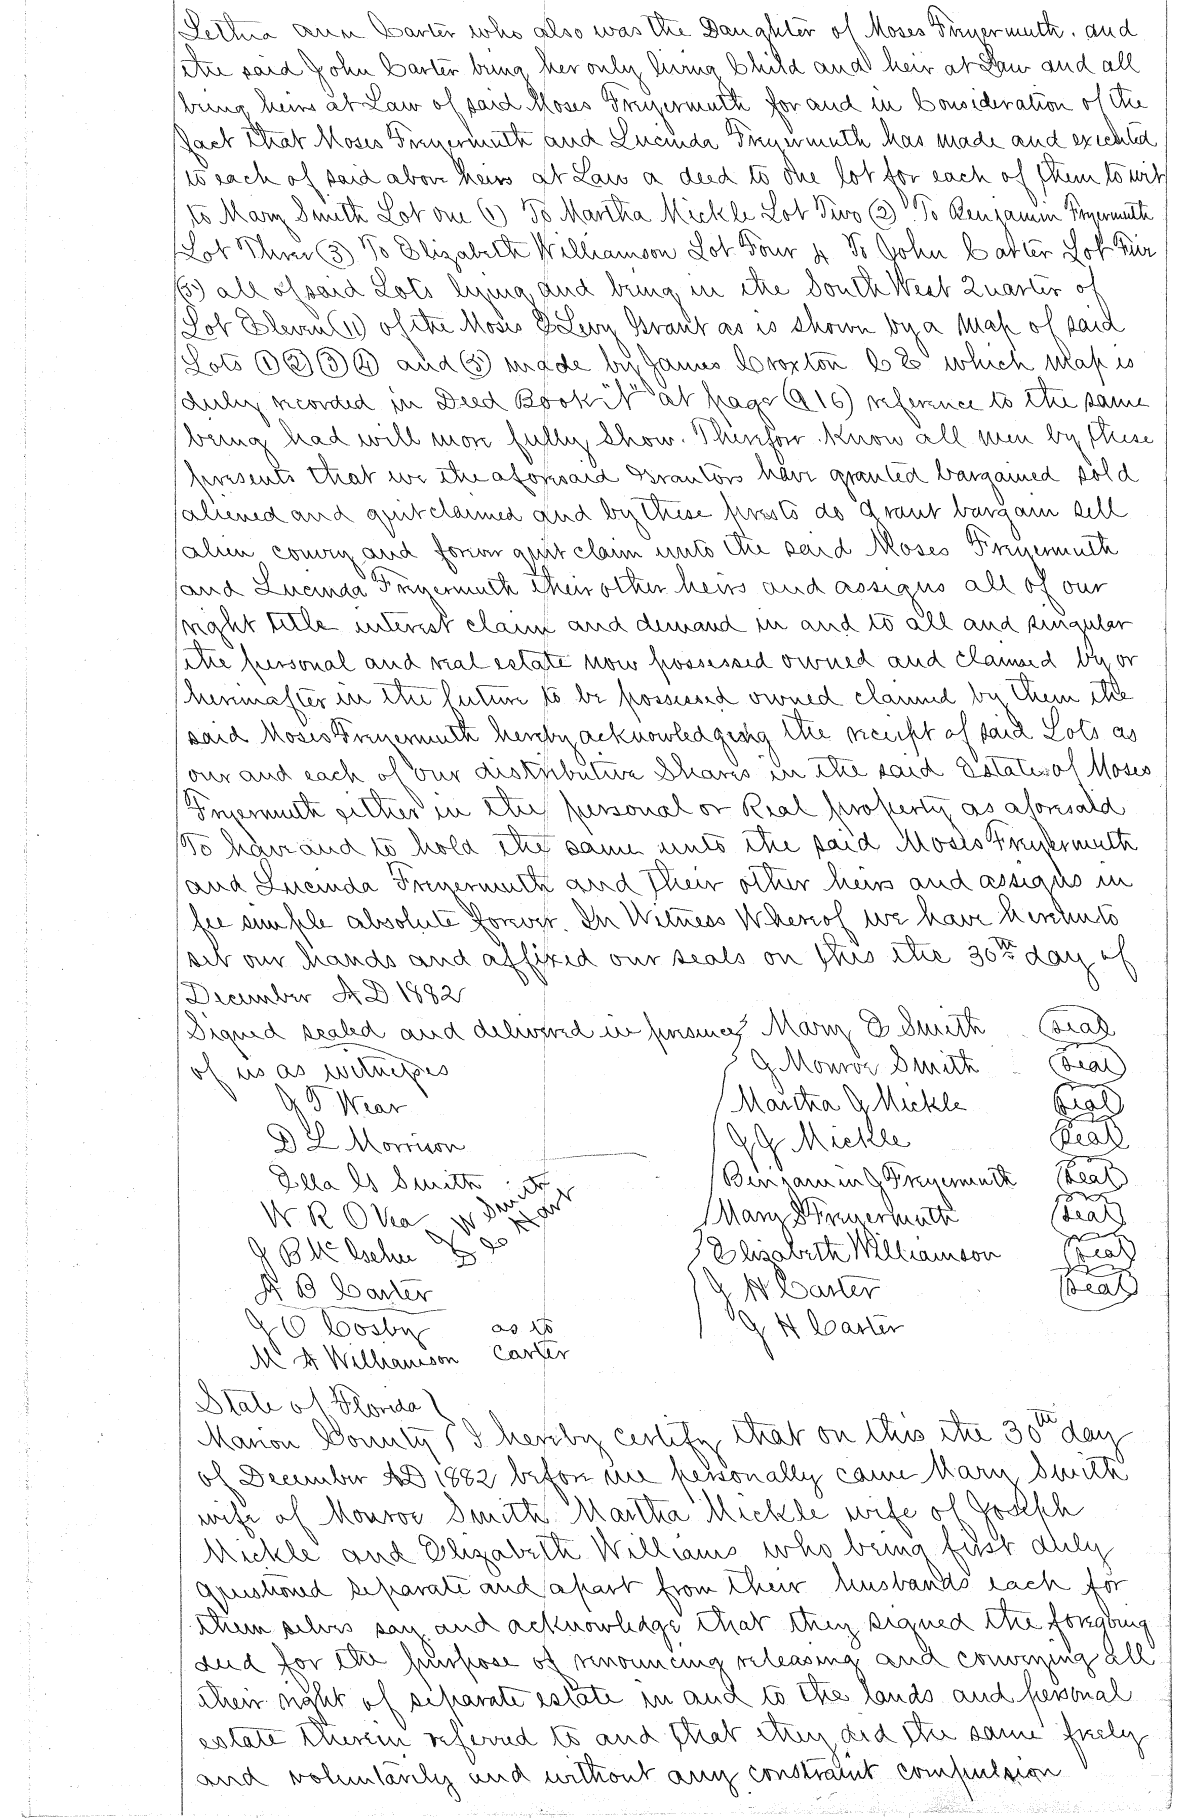 Lethia Ann Carter who also was the Daughter of Moses Freyermuth. and
the said John Carter being her only living Child and heir at Law and all
being heirs at Law of said Moses Freyermuth for and in Consideration of the
fact that Moses Freyermuth and Lucinda Freyermuth has made and executed
to each of said above heirs at Law a deed to one lot for each of them to wit
to Mary Smith Lot one (1) To Martha Mickle Lot Two (2) To Benjamin Freyermuth
Lot Three (3) To Elizabeth Williamson Lot Four 4 To John Carter Lot Five
(5) all of said Lots lying and being in the South West Quarter of
Lot Eleven (11) of the Moses E Levy Grant as is shown by a Map of said
Lots (1) (2) (3) (4) and (5) made by James Croxton C E which Map is
duly recorded in Deed Book at page (916) reference to the same
being had will more fully show. Therefore Know all men by these
presents that we the aforesaid Grantors have granted bargained sold
aliened and quit claimed and by these prests do grant bargain sell
alien convey and forever quit claim unto the said Moses Freyermuth
and Lucinda Freyermuth their other heirs and assigns all of our
right title interest claim and demand in and to all and singular
the personal and real estate now possessed owned and claimed by or
hereinafter in the future to be possessed owned claimed by them the
said Moses Freyermuth hereby acknowledgeing the receipt of said Lots as
our and each of our distributive Shares in the said Estate of Moses
Freyermuth either in the personal or Real property as aforesaid
To have and to hold the same unto the said Moses Freyermuth
and Lucinda Freyermuth and their other heirs and assigns in
fee simple absolute forever. In Witness Whereof we have hereunto
set our hands and affixed our seals on this the 30th day of
December AD 1882
Signed sealed and delivered in presence Mary E Smith (Seal)
of us as witnesses J Monroe Smith (Seal)
J T Wear Martha J Mickle (Seal)
D L Morrison J J Mickle (Seal)
Ella G Smith Benjamin J Freyermuth (Seal)
W R O Vea J W Smith Mary S Freyermuth (Seal)
J B Hart Elizabeth Williamson (Seal)
A B Carter J H Carter (Seal)
J O Cosby as to J H Carter
M A Williamson Carter
State of Florida
Marion County I hereby certify that on this the 30th day
of December AD 1882 before me personally came Mary Smith
wife of Monroe Smith Martha Mickle wife of Joseph
Mickle and Elizabeth Williams who being first duly
questioned separate and apart from their husbands each for
them selves say and acknowledge that they signed the foregoing
deed for the purpose of renouncing releasing and conveying all
their right of separate estate in and to the lands and personal
estate therein referred to and that they did the same freely
and voluntarily and without any constraint compulsion